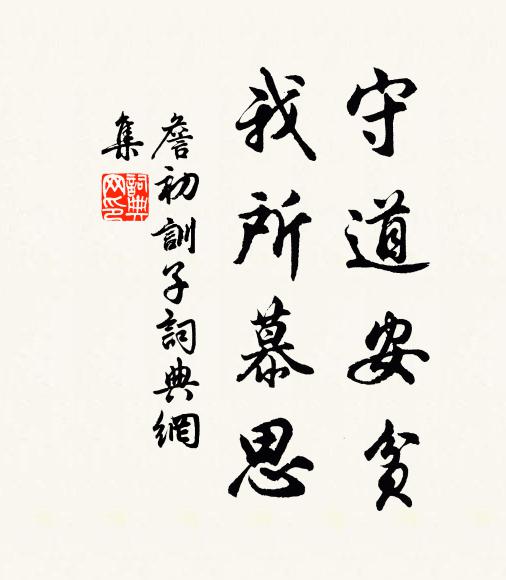 守道安貧
我所慕思
詹初訓子詞典網
集
詞典
网印